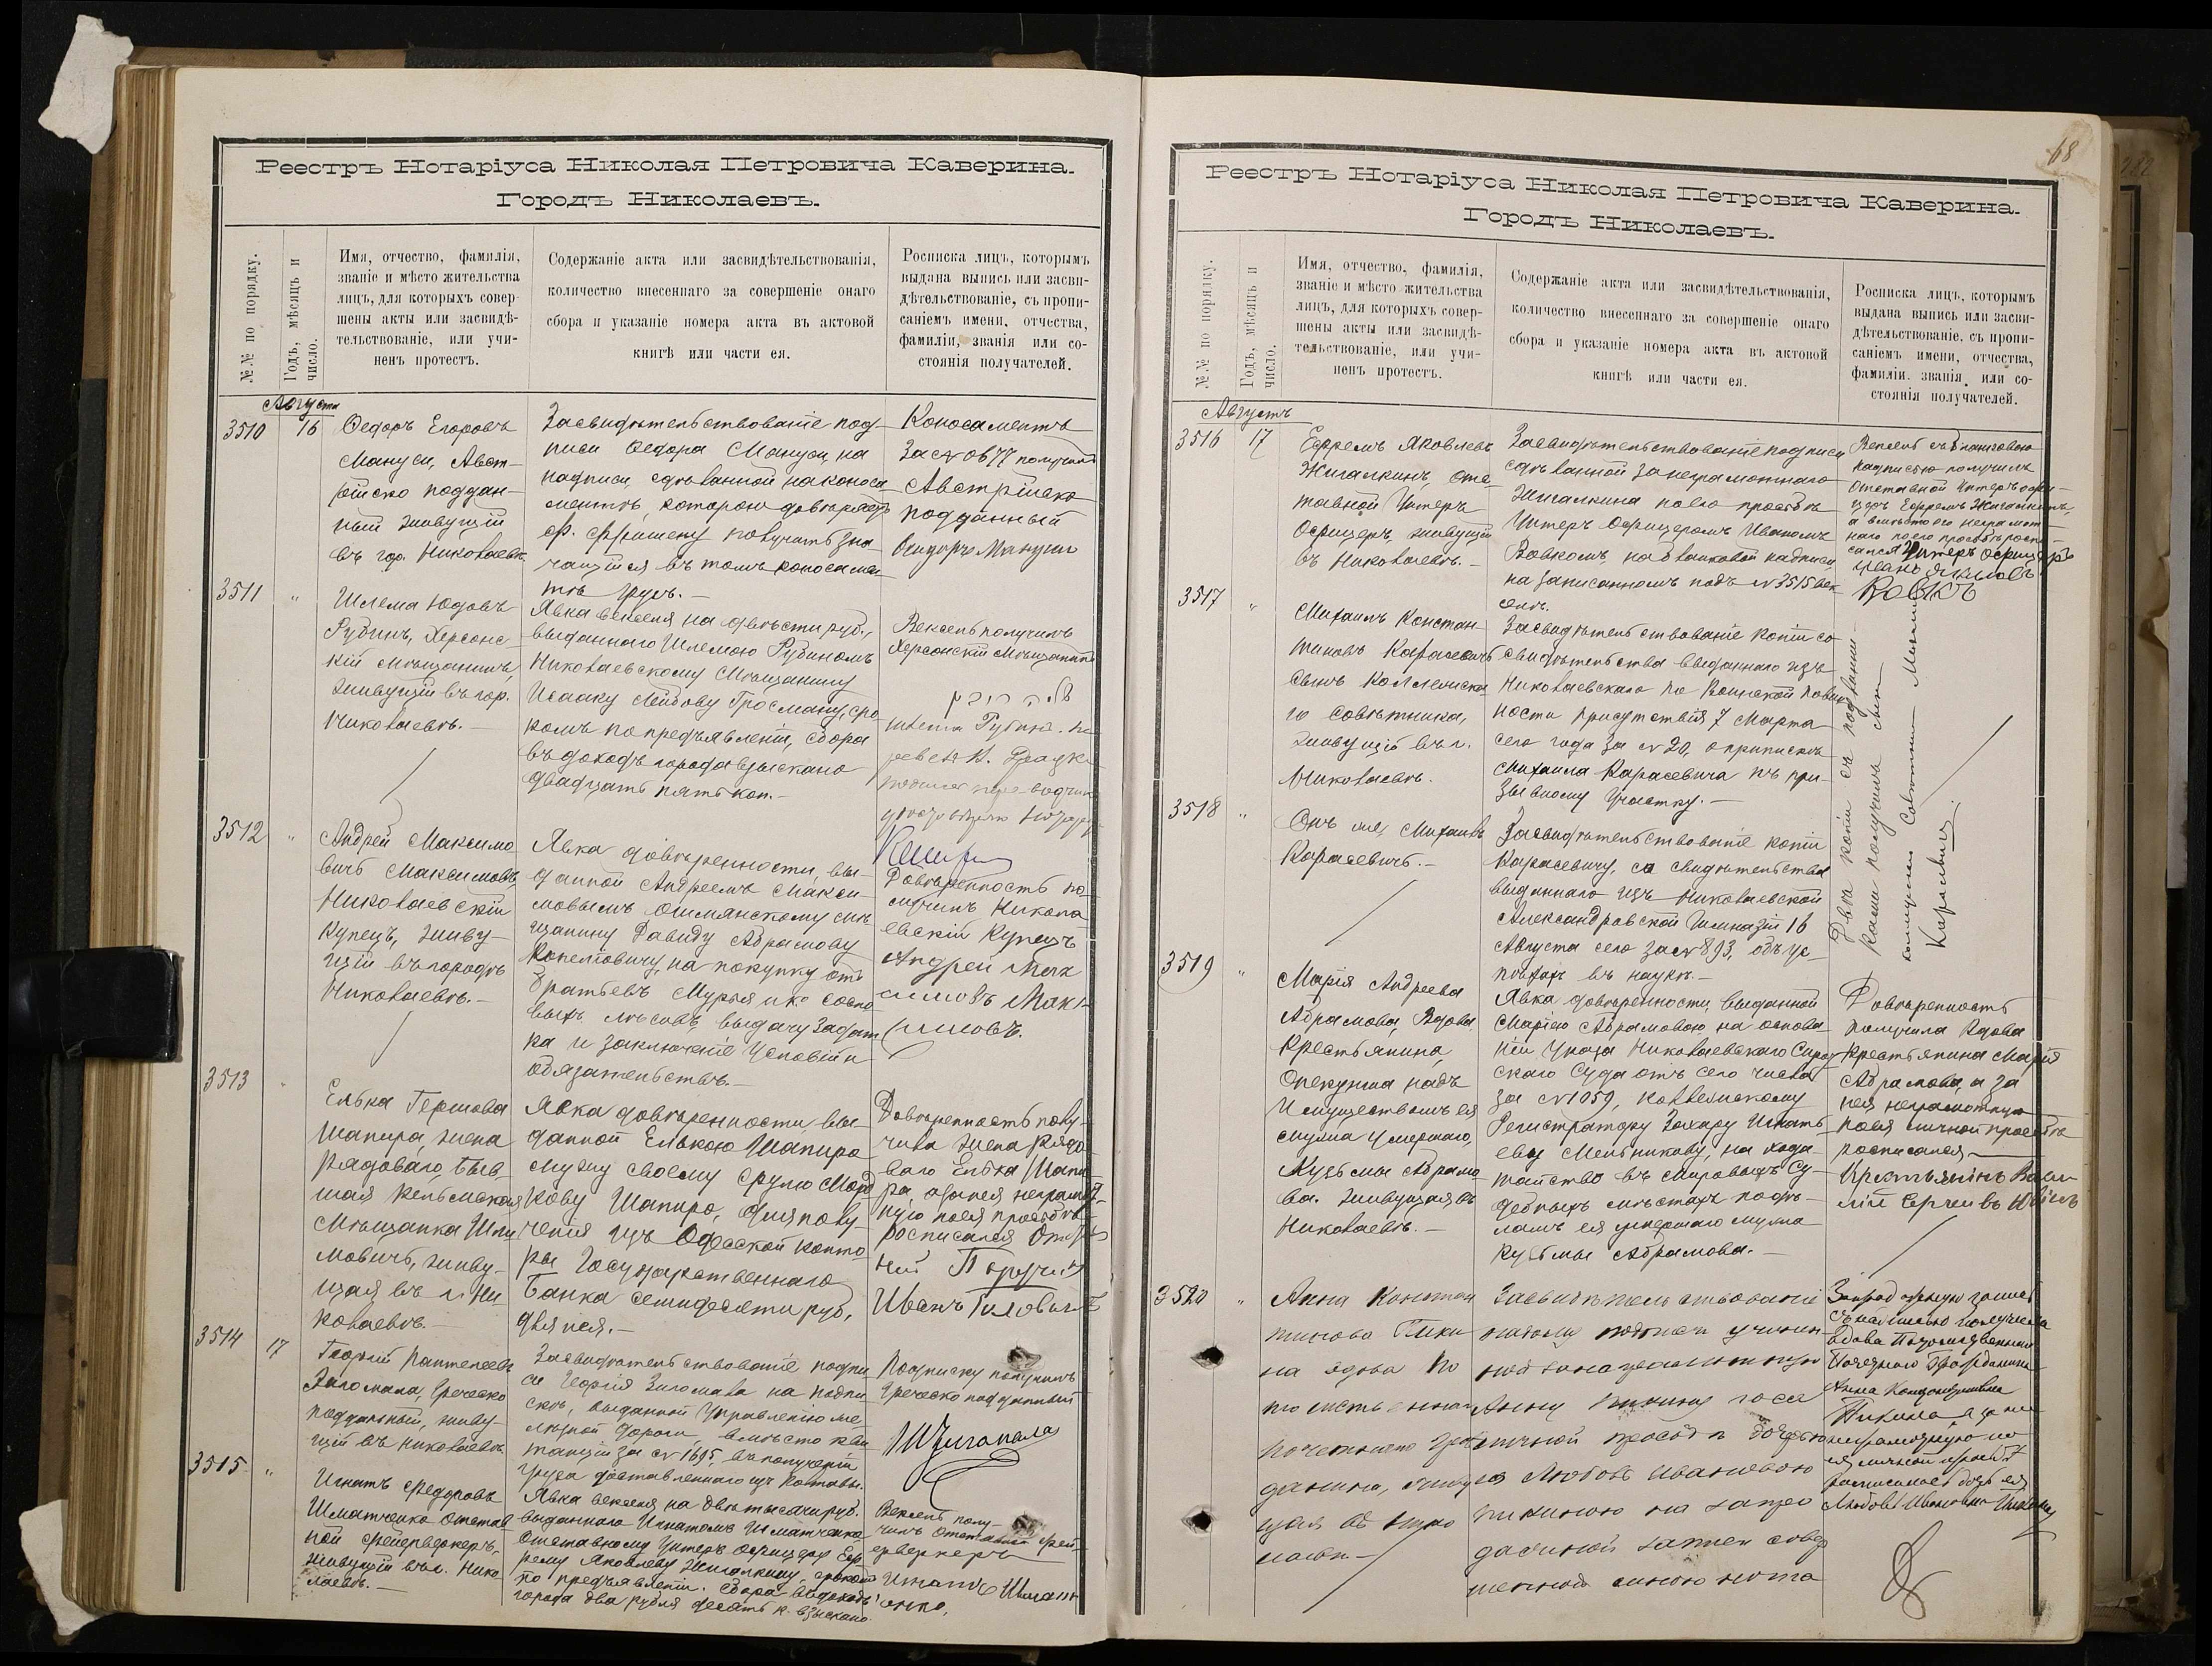 Реестръ Нотаріуса Николая Петровича Каверина.
Городъ Николаевъ.
№№ по порядку.
Годъ, мѣсяцъ и
число.
Имя, отчество, фамилія,
званіе и мѣсто жительства
лицъ, для которыхъ совер-
шены акты или засвидѣ-
тельствованіе, или учи-
ненъ протестъ.
Содержаніе акта или засвидѣтельствованія,
количество внесеннаго за совершеніе онаго
сбора и указаніе номера акта въ актовой
книгѣ или части ея.
Росписка лицъ, которымъ
выдана выпись или засви-
дѣтельствованіе, съ пропи-
саніемъ имени, отчества,
фамиліи, званія или со-
стоянія получателей.
Августа
3510
16
Ѳедоръ Егоровъ
Мануси, Авст-
рійско поддан-
ный живущій
въ гор. Николаевѣ
Засвидѣтельствованіе под-
писи Ѳедора Мануси, на
надписи, сдѣланной на коноса
ментѣ, которою довѣряетъ
получить зна-
чащійся въ томъ коносамен
тѣ грузъ.-
Коносаментъ
за № 0677 получилъ
Австрійско
подданный
3511
"
Шлема Юдовъ
Рубинъ, Херсонс-
кій мѣщанинъ,
живущій въ гор.
Николаевѣ.-
Явка векселя на двѣсти руб.,
выданнаго Шлемою Рубиномъ
Николаевскому мѣщанину
Исааку Лейбову Гросману, сро
комъ по предъявленіи, сбора
въ доходъ города взыскано
двадцать пять коп.-
Вексель получилъ
Херсонскій мѣщанинъ
3512
"
Андрей Максимо
вичъ Максимовъ,
Николаевскій
Купецъ, живу-
щій въ городѣ
Николаевѣ.-
Явка довѣренности, вы-
данной Андреемъ Макси
мовымъ Ошмянскому мѣ
щанину Давиду Абрамову
Копелiовичу, на покупку отъ
Братьевъ
выхъ лѣсовъ, выдачу задат
ка и заключеніе условій и
обязательствъ.-
Довѣренность по
лучилъ Никола
евскій Купецъ
Андрей Мак
симовъ Мак
симовъ.
3513
"
Елька Гершова
Шапира, жена
рядоваго, быв
шая Кельмская
мѣщанка Шли
мовичъ, живу-
щая въ г. Ни-
колаевѣ.-
Явка довѣренности вы
данной Елькою Шапиро
мужу своему Срулю Морд
кову Шапиро, для полу-
ченія изъ Одесской конто-
ры Государственнаго
Банка семидесяти руб,
для нея.-
Довѣренность полу-
чила жена рядо
ваго Елька Шапи
ра, а за нея неграмот-
ную по ея просьбѣ
росписался
Иванъ
3514
17
Георгій Пантелеевъ
Зигомала, Греческо
подданный, живу-
щій въ Николаевѣ
Засвидѣтельствованіе подпи
си Георгія Зигомала на подпи
скѣ, выданной Управленію же-
лѣзной дороги, вмѣсто кви
танціи за № 1695, въ полученіи
груза доставленнаго изъ
Подписку получилъ
Греческо подданный
3515
"
Игнатъ Федоровъ
Шматченко Отстав
ной фейерверкеръ,
живущій въ г. Нико
лаевѣ.-
Явка векселя на двѣ тысячи руб.
выданнаго Игнатомъ Шматченко
Отставному Унтеръ Офицеру Еф-
рему Яковлеву Жигалкину, срокомъ
по предъявленіи. Сбора въ доходъ
города два рубля десять к. взыскано.
Вексель полу-
чилъ Отставной Фей-
ерверкеръ
Игнатъ Шмат
ченко.
68
Реестръ Нотаріуса Николая Петровича Каверина.
Городъ Николаевъ.
№№ по порядку.
Годъ, мѣсяцъ и
число.
Имя, отчество, фамилія,
званіе и мѣсто жительства
лицъ, для которыхъ совер-
шены акты или засвидѣ-
тельствованіе, или учи-
ненъ протестъ.
Содержаніе акта или засвидѣтельствованія,
количество внесеннаго за совершеніе онаго
сбора и указаніе номера акта въ актовой
книгѣ или части ея.
Росписка лицъ, которымъ
выдана выпись или засви-
дѣтельствованіе, съ пропи-
саніемъ имени, отчества,
фамиліи, званія, или со-
стоянія получателей.
Августъ
3516
17
Ефремъ Яковлевъ
Жигалкинъ, Отс-
тавной Унтеръ
Офицеръ, живущій
въ Николаевѣ.-
Засвидѣтельствованіе подписи
сдѣланной за неграмотнаго
Жигалкина по его просьбѣ
Унтеръ Офицеромъ Иваномъ
Вовкомъ, на бланковой надписи,
на записанномъ подъ № 3515 век
селѣ.
Вексель съ бланковою
надписью получилъ
Отставной Унтеръ офи-
церъ Ефремъ Жигалкинъ,
а вмѣсто его неграмот
наго по его просьбѣ роспи-
сался Унтеръ Офицеръ
Вовкъ
3517
"
Михаилъ Констан-
тиновъ Карасевичъ
сынъ Коллежска
го Совѣтника,
живущій въ г.
Николаевѣ.
Засвидѣтельствованіе копіи со
свидѣтельства выданнаго изъ
Николаевскаго по Воинской повин
ности присутствія 7 Марта
сего года за № 20, о припискѣ
Михаила Карасевича къ при-
зывному участку.-
Двѣ копіи съ подлинни-
ками получилъ сынъ
Карасевичъ
3518
"
Онъ же, Михаилъ
Карасевичъ.-
Засвидѣтельствованіе копіи
Карасевичу, со свидѣтельства
выданнаго изъ Николаевской
Александровской Гимназіи 16
Августа сего за № 893, объ ус-
пѣхахъ въ наукѣ.-
3519
"
Марія Андреева
Абрамова, Вдова
Крестьянина,
Опекунша надъ
Имуществомъ ея
мужа умершаго,
Кузьмы Абрамо
ва. Живущая въ
Николаевѣ.-
Явка довѣренности, выданной
Маріею Абрамовою, на основа-
ніи Указа Николаевскаго Сирот
скаго Суда отъ сего числа
за № 1059, Коллежскому
Регистратору Захару Игнать
еву Мельникову, на хода
тайство въ Мировыхъ Су-
дебныхъ мѣстахъ по дѣ-
ламъ ея умершаго мужа
Кузьмы Абрамова.-
Довѣренность
получила Вдова
Крестьянина Марія
Абрамова, а за
нея неграмотную
по ея личной просьбѣ
росписался
Крестьянинъ Васи
лій
3520
"
Анна Констан
тинова Пики
на вдова По
томственнаго
Почетнаго Граж
данина, живу
щая въ Нико
лаевѣ.-
Засвидѣтельствованіе
подписи учинен
ной за неграмотную
Анну Пикину по ея
личной просьбѣ дочерью
ея Любовью Ивановною
Пикиною на
закладной
съ надписью получила
вдова Потомственнаго
Почетнаго Гражданина
Анна Константиновна
Пикина а за не
неграмотную по
ея личной просьбѣ
росписалась дочь ея
Любовь Ивановна Пикина